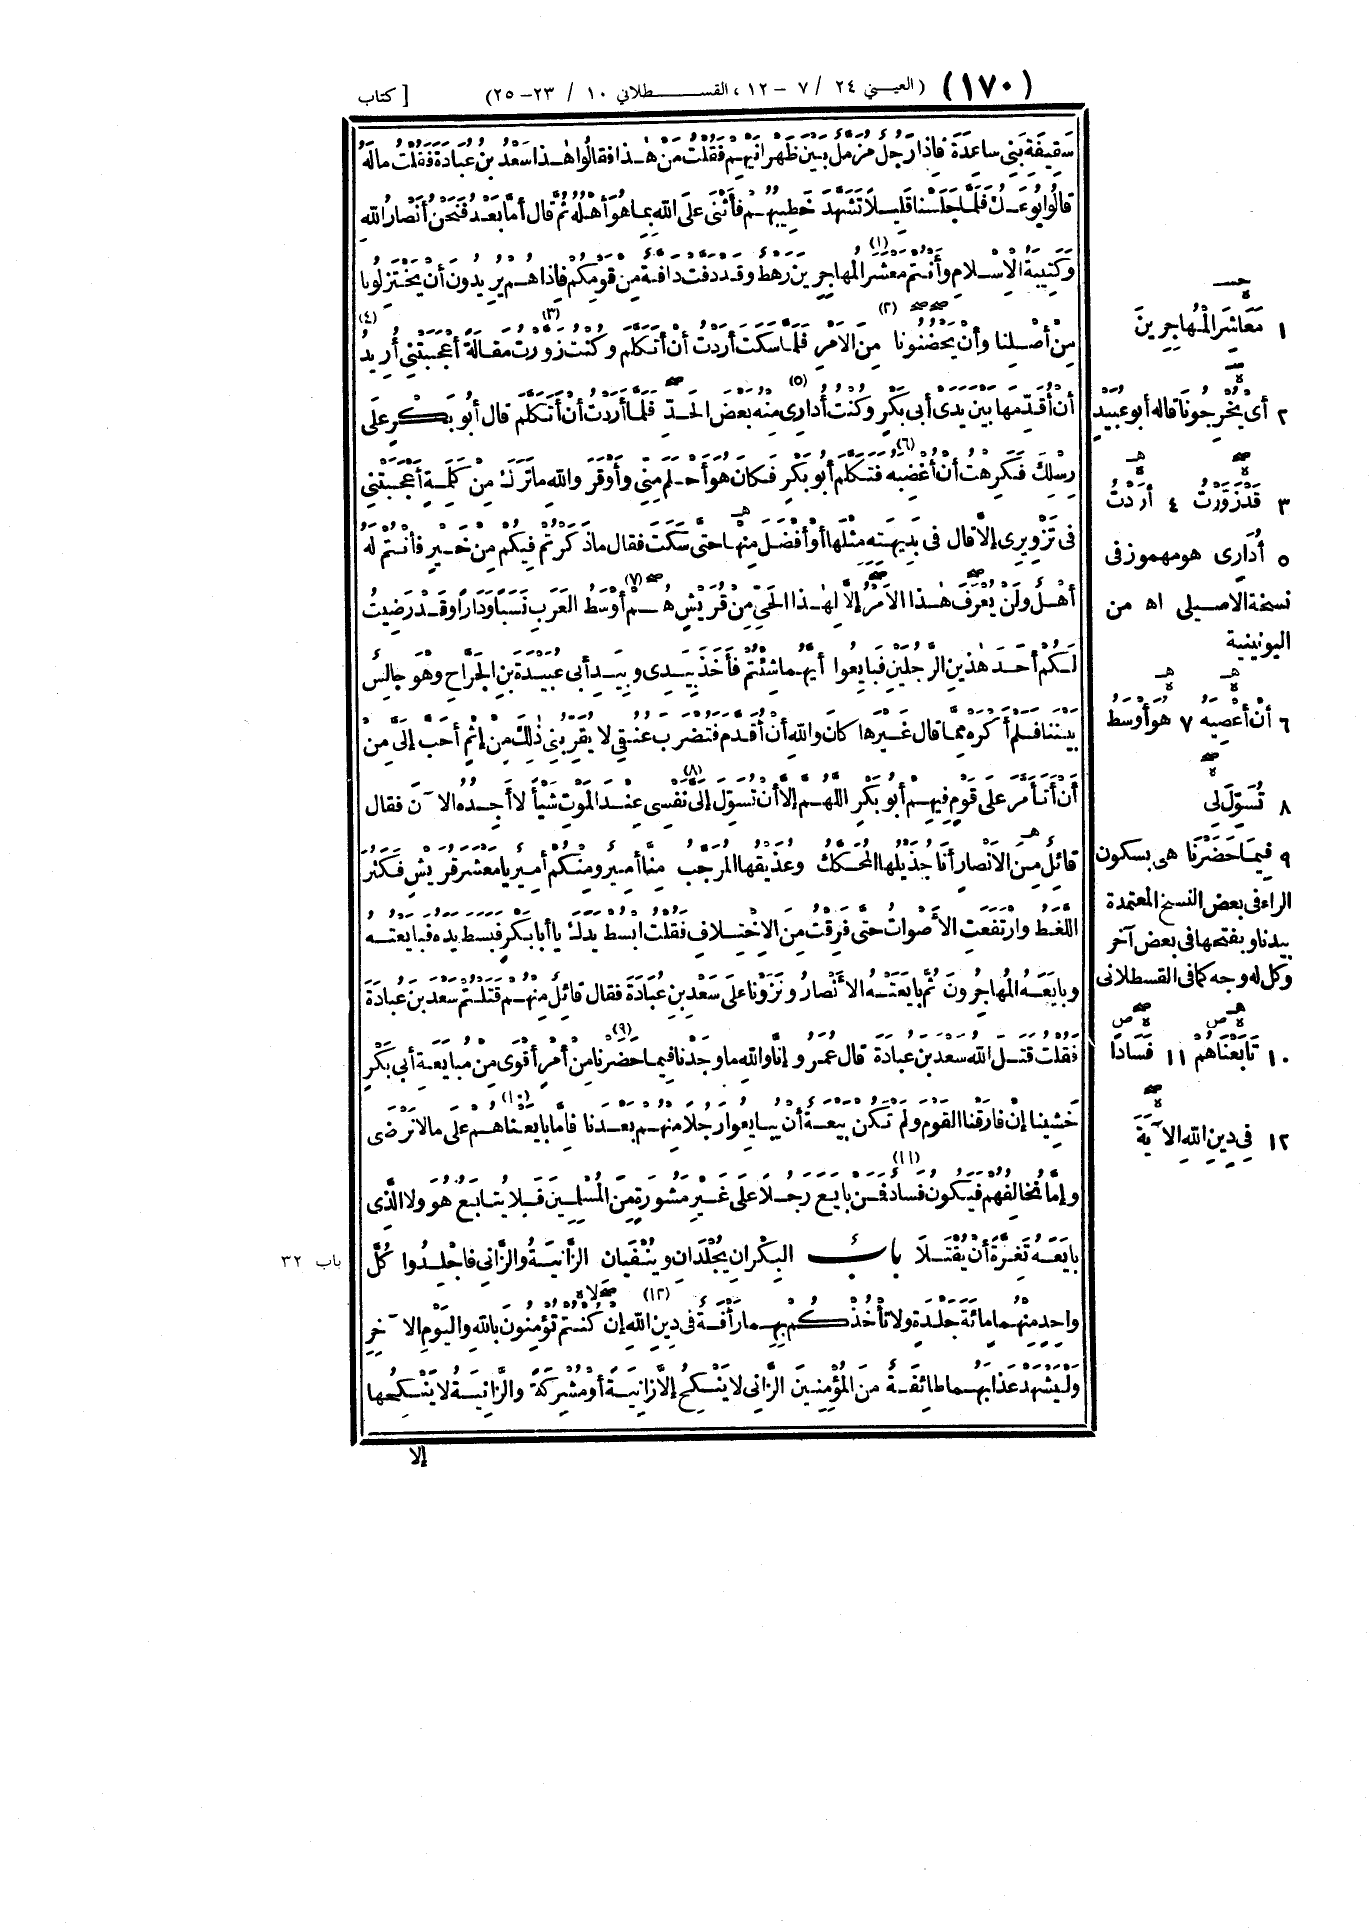 (١٧٠) (العيني ٢٤ / ٧ - ١٢، القسطلاني ١٠ / ٢٣-٢٥) [كتاب
سقيفة بني ساعدة فاذا رجل مزمل بين ظهرانيهم فقلت من هذا فقالوا هذا سعد بن عبادة فقلت ماله
قالوا يوعك فلما جلسنا قليلا تشهد خطيبهم فأثنى على الله بما هو أهله ثم قال أما بعد فنحن أنصار الله
وكتيبة الإسلام وأنتم معشر (١) المهاجرين رهط وقد دفت دافة من قومكم فاذا هم يريدون أن يختزلونا
من أصلنا وأن يحضنونا (٢) من الأمر فلما سكت أردت أن أتكلم وكنت زورت (٣) مقالة أعجبتني أريد (٤)
أن أقدمها بين يدى أبى بكر وكنت أدارى (٥) منه بعض الحد فلما أردت أن أتكلم قال أبو بكر على
رسلك فكرهت أن أغضبه (٦) فتكلم أبو بكر فكان هو أحلم منى وأوقر والله ما ترك من كلمة أعجبتنى
فى تزويرى إلا قال فى بديهته مثلها أو أفضل منها حتى سكت فقال ما ذكرتم فيكم من خير فأنتم له
أهل ولن يعرف هذا الأمر إلا لهذا الحى من قريش هم (٧) أوسط العرب نسبا ودارا وقد رضيت
لكم أحد هذين الرجلين فبايعوا أيهما شئتم فأخذ بيدى وبيد أبى عبيدة بن الجراح وهو جالس
بيننا فلم أكره مما قال غيرها كان والله أن أقدم فتضرب عنقى لا يقربنى ذلك من إثم أحب إلى من
أن أتأمر على قوم فيهم أبو بكر اللهم إلا أن تسول إلى (٨) نفسى عند الموت شيأ لا أجده الآن فقال
قائل من الأنصار أنا جذيلها المحكك وعذيقها المرجب منا أمير ومنكم أمير يا معشر قريش فكثر
اللغط وارتفعت الأصوات حتى فرقت من الاختلاف فقلت ابسط يدك يا أبا بكر فبسط يده فبايعته
وبايعه المهاجرون ثم بايعته الأنصار ونزونا على سعد بن عبادة فقال قائل منهم قتلتم سعد بن عبادة
فقلت قتل الله سعد بن عبادة قال عمر وإنا والله ما وجدنا فيما حضرنا (٩) من أمر أقوى من مبايعة أبى بكر
خشينا إن فارقنا القوم ولم تكن بيعة أن يبايعوا رجلا منهم بعدنا فاما بايعناهم (١٠) على ما لا نرضى
وإما نخالفهم فيكون فساد (١١) فمن بايع رجلا على غير مشورة من المسلمين فلا يتابع هو ولا الذى
بايعه تغرة أن يقتلا باب البكران يجلدان وينفيان الزانية والزانى فاجلدوا كل
واحد منهما مائة جلدة ولا تأخذكم بهما رأفة فى دين الله (١٢) إن كنتم تؤمنون بالله واليوم الآخر
وليشهد عذابهما طائفة من المؤمنين الزانى لا ينكح إلا زانية أو مشركة والزانية لا ينكحها
إلا
باب ٣٢
١ معاشر المهاجرين
٢ أى يخرجونا قاله أبو عبيد
٣ قد زورت ٤ أردت
٥ أدارى هو مهموز فى
نسخة الاصيلى اه من
اليونينية
٦ أن أعصيه ٧ هو أوسط
٨ تسول لى
٩ فيما حضرنا هى بسكون
الراء فى بعض النسخ المعتمدة
بيدنا وبفتحها فى بعض آخر
وكل له وجه كما فى القسطلانى
١٠ تابعناهم ١١ فسادا
١٢ فى دين الله الآية